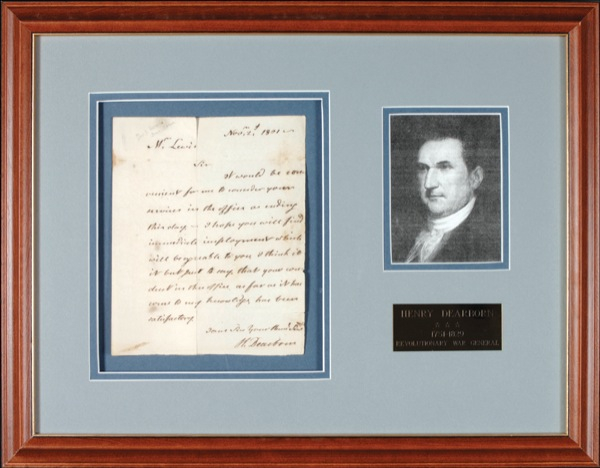 Nov. 2d 1801
Mr. Lewis
Sir
it would be con
venient for me to consider your
services in the office as ending
this day – I hope you will find
immediate imployment which
will be agreable to you I think it
it but just to say that your con
duct in this office as far as it has
come to my knowledge has been
satisfactory
Your
H. Dearborn
HENRY DEARBORN
1751-1829
REVOLUTIONARY WAR GENERAL